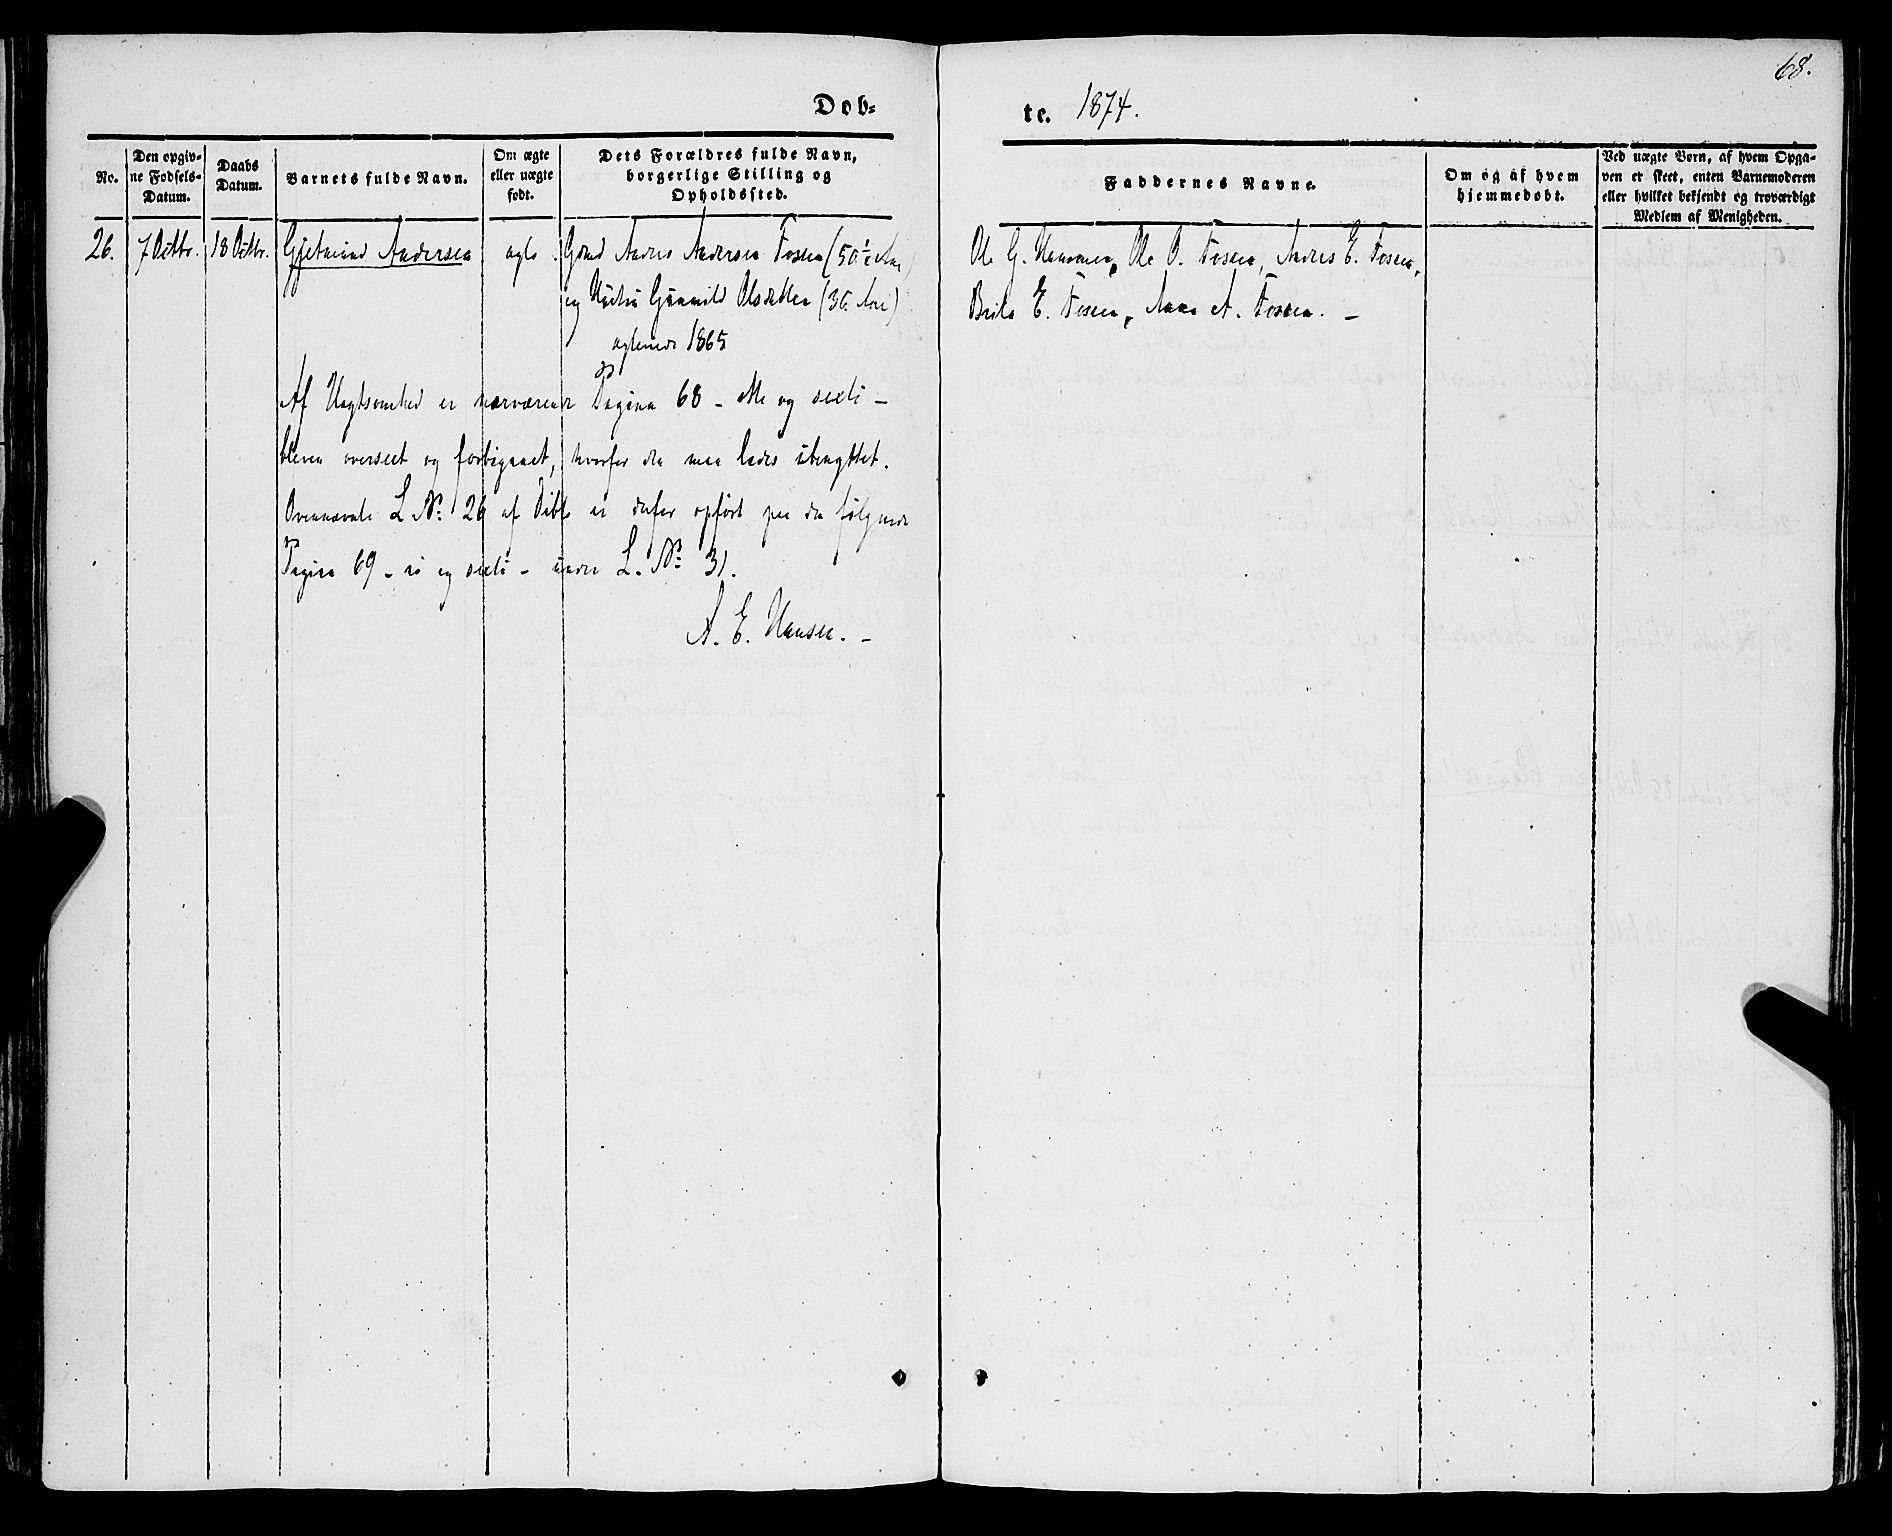 68.
Døb-
te. 1874.
No.
Den opgiv-
ne Fødsels-
Datum.
Daabs
Datum.
Barnets fulde Navn.
Om ægte
eller uægte
født.
Dets Forældres fulde Navn,
borgerlige Stilling og
Opholdssted.
Faddernes Navne.
Om og af hvem
hjemmedøbt.
Ved uægte Børn, af hvem Opga-
ven er skeet, enten Barnemoderen
eller hvilket bekjendt og troværdigt
Medlem af Menigheden.
26. 7 Octbr. 18 Octbr. Andersen ægte Anders Andersen Fossen (50½ Aar)
og Hustru Gunnild Olsdatter (36 Aar)
1865
Ole G. Ole O. Fossen, Anders E. Fossen,
E. Fossen, A. Fossen. –
Af Uagtsomhed er nærværende Pagina 68 – otte og sexti –
bleven overseet og forbigaaet, hvorfor den maa lades ubenyttet.
Ovennævnte L. No. 26 af Døbte er derfor opført paa den følgende
Pagina 69 – ni og sexti – under L. No. 31.
A. E. Hansen. –